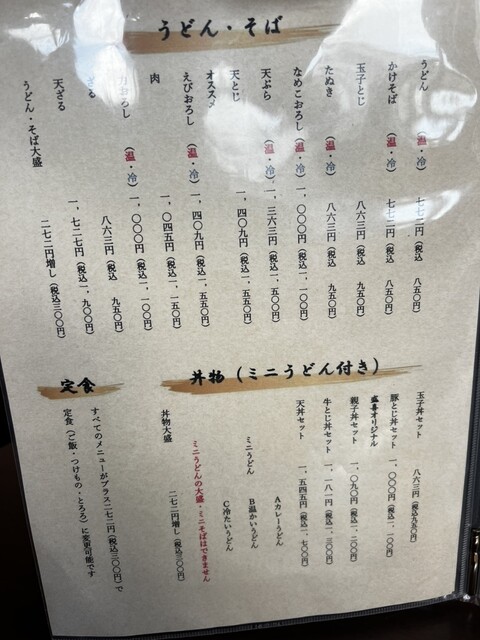 うどん・そば
うどん (温・冷) 七七二円(税込 八五〇円)
かけそば (温・冷) 七七二円(税込 八五〇円)
玉子とじ 八六三円(税込 九五〇円)
たぬき (温・冷) 八六三円(税込 九五〇円)
なめこおろし (温・冷) 一、〇〇〇円(税込一、一〇〇円)
天ぷら (温・冷) 一、三六三円(税込一、五〇〇円)
天とじ 一、四〇九円(税込一、五五〇円)
オススメ
えびおろし (温・冷) 一、四〇九円(税込一、五五〇円)
肉 一、〇四五円(税込一、一五〇円)
おろし (温・冷) 一、〇〇〇円(税込一、一〇〇円)
ざる 八六三円(税込 九五〇円)
天ざる 一、七二七円(税込一、九〇〇円)
うどん・そば大盛 二七二円増し(税込三〇〇円)
丼物(ミニうどん付き)
玉子丼セット 八六三円(税込九五〇円)
豚とじ丼セット 一、〇〇〇円(税込一、一〇〇円)
盛喜オリジナル
親子丼セット 一、〇九〇円(税込一、二〇〇円)
牛とじ丼セット 一、一八一円(税込一、三〇〇円)
天丼セット 一、五四五円(税込一、七〇〇円)
ミニうどん
Aカレーうどん
B温かいうどん
C冷たいうどん
ミニうどんの大盛・ミニそばはできません
丼物大盛 二七二円増し(税込三〇〇円)
定食
すべてのメニューがプラス二七二円(税込三〇〇円)で
定食(ご飯・つけもの・とろろ)に変更可能です